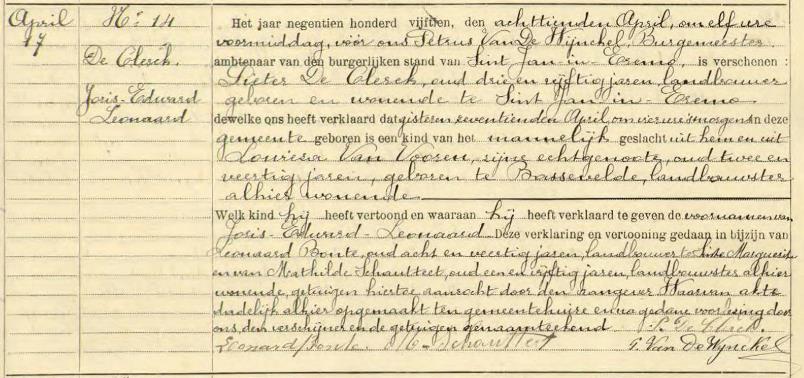 April
17
N: 14
De Clerck.
Joris-Edward
Leonaard
Het jaar negentien honderd vijftien, den achttienden April, om elf ure
voormiddag, vóór ons Petrus Van De Wijnckel, Burgemeester,
ambtenaar van den burgerlijken stand van Sint Jan-in-Eremo, is verschenen :
Pieter De Clerck, oud drie en vijftig jaren, landbouwer
geboren en wonende te Sint Jan-in-Eremo
dewelke ons heeft verklaard dat gisteren zeventienden April, om vier ure 's morgens in deze
gemeente geboren is een kind van het mannelijk geslacht uit hem en uit
Louiesa Van Vooren, zijne echtgenoote, oud twee en
veertig jaren, geboren te Bassevelde, landbouwster
alhier wonende
Welk kind hij heeft vertoond en waaraan hij heeft verklaard te geven de voornamen van
Joris-Edward-Leonaard. Deze verklaring en vertooning gedaan in bijzijn van
Leonaard Bonte, oud acht en veertig jaren, landbouwer te Sinte Marguerite
en van Mathilde Schautteet, oud een en vijftig jaren, landbouwster alhier
wonende, getuigen hiertoe aanzocht door den aangever Waarvan akte
dadelijk alhier opgemaakt ten gemeentehuize en na gedane voorlezing door
ons, den verschijner en de getuigen genaamteekend P. De Clerck.
Leonard Bonte. M- Schautteet P. Van De Wynckel